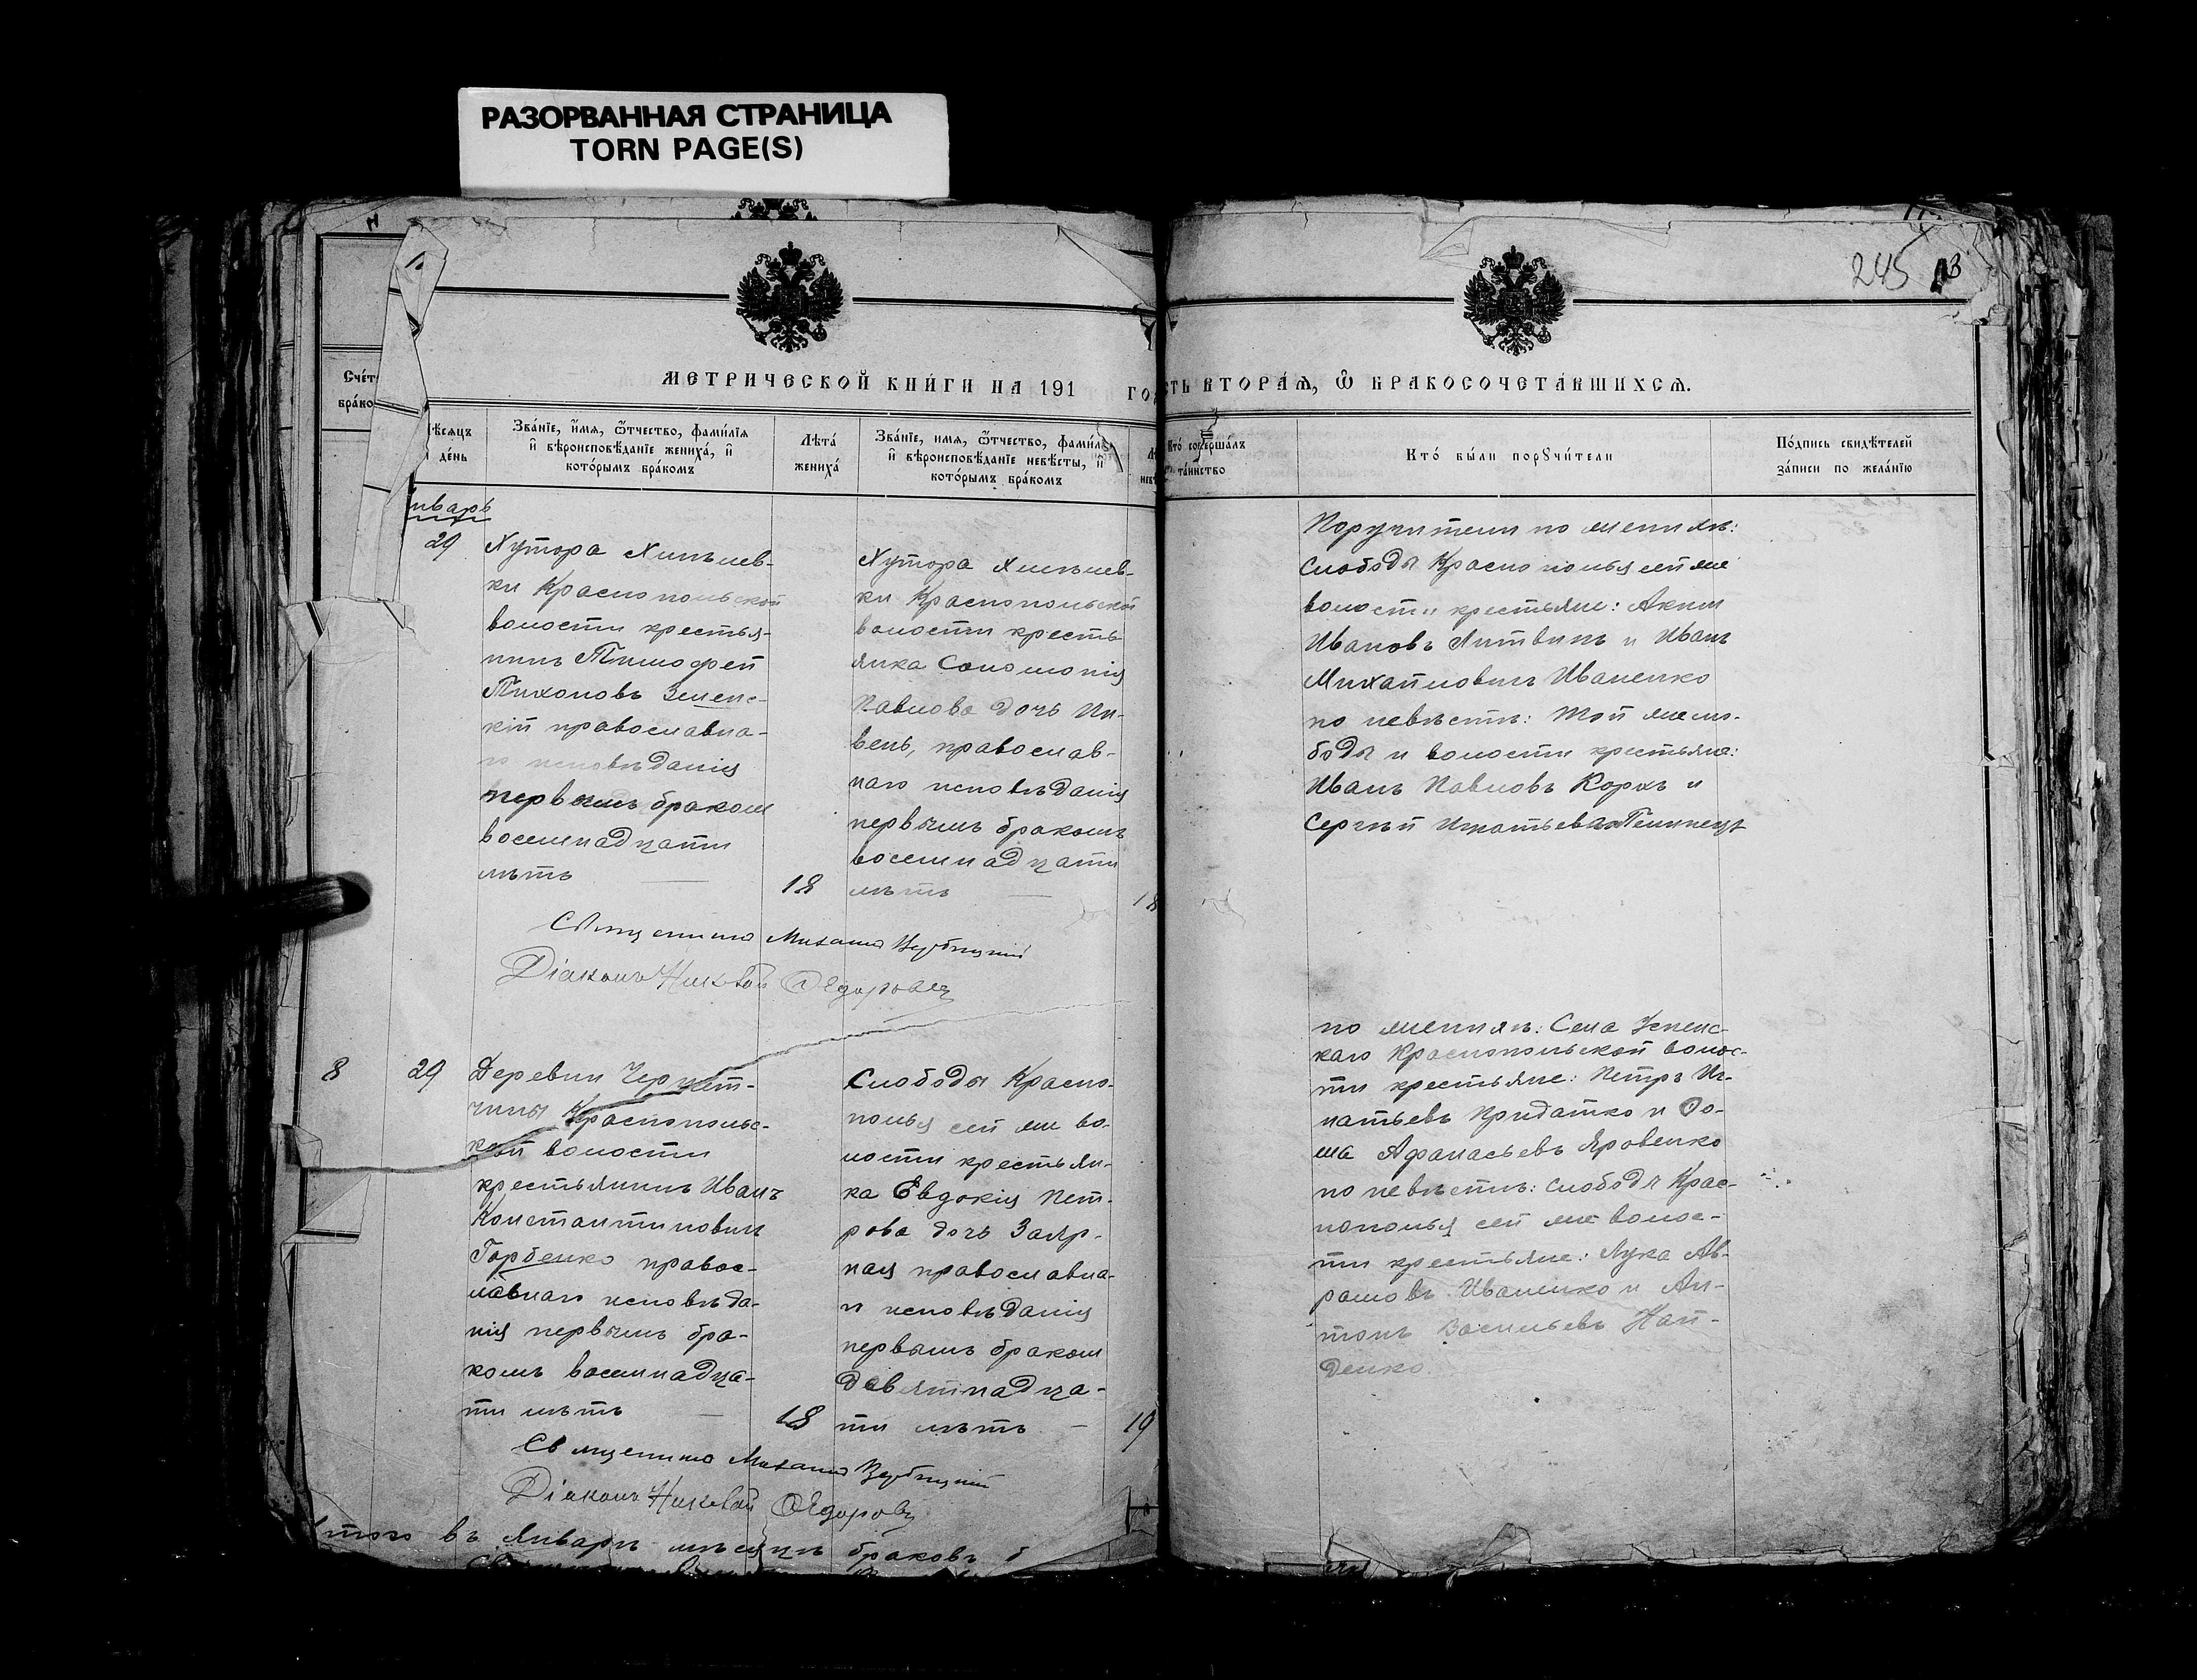 РАЗОРВАННАЯ СТРАНИЦА
TORN PAGE(S)
245
МЕТРИЧЕСКОЙ КНИ́ГИ НА 191 ГО
СТЬ ВТОРА́Ѧ, Ѽ БРАКОСОЧЕТА́ВШИХСѦ.
Сче́т
бра́ко
ѣсѧцъ
де́нь
Зва́нїе, и҆́мѧ, ѻ҆́тчество, фами́лїѧ
и҆ вѣроисповѣ́данїе жениха́, и҆
кото́рымъ бра́комъ
Лѣта́
жениха́
Зва́нїе, имѧ, ѻ҆́тчество, фами́лїѧ
и҆ вѣроисповѣ́данїе невѣ́сты, и҆
кото́рымъ бра́комъ
Кто́ соверша́лъ
та́инство
Кто́ бы́ли порꙋчи́тели
По́дпись свидѣ́телей
за́писи по жела́нїю
нварь
29
Хутора Хмѣлев-
ки Краснопольской
волости крестья-
нинъ Тимофей
Тихоновъ Зеленс-
кій православна-
го исповѣданія
первымъ бракомъ
восемнадцати
лѣтъ
18
Хутора Хмѣлев-
ки Краснопольской
волости кресть
янка Соломонія
Павлова дочь Пи-
вень, православ-
наго исповѣданія
первымъ бракомъ
восемнадцати
лѣтъ
18
Поручители по женихѣ:
Слободы Краснополья сей же
волости крестьяне: Аким
Ивановъ Литвинъ и Иванъ
Михайловичъ Иваненко
по невѣстѣ: той же сло-
боды и волости крестьяне:
Иванъ Павловъ Коржъ и
Сергѣй Игнатьевъ
Священникъ Михаилъ
Діаконъ Николай Ѳедоровъ
8
29
Деревни Чернет-
чины Краснопольс-
кой волости
крестьянинъ Иванъ
Константиновичъ
Горбенко правос-
лавнаго исповѣда-
нія первымъ бра-
комъ восемнадца-
ти лѣтъ
18
Слободы Красно-
полья сей же во-
лости крестьян-
ка Евдокія Пет-
рова дочь Заяр-
ная православна-
го исповѣданія
первымъ бракомъ
девятнадца-
ти лѣтъ
19
по женихѣ: Села Успенс-
каго Краснопольской волос-
ти крестьяне: Петръ Иг-
натьевъ Придатко и Ѳо-
ма Афанасьевъ Яровенко
по невѣстѣ: слободы Крас-
нополья сей же волос-
ти крестьяне: Лука Ав-
рамовъ Иваненко и Ан-
тонъ Васильевъ Най-
денко
Священникъ Михаилъ
Діаконъ Николай Ѳедоровъ
того въ Январѣ мѣсяцѣ браковъ